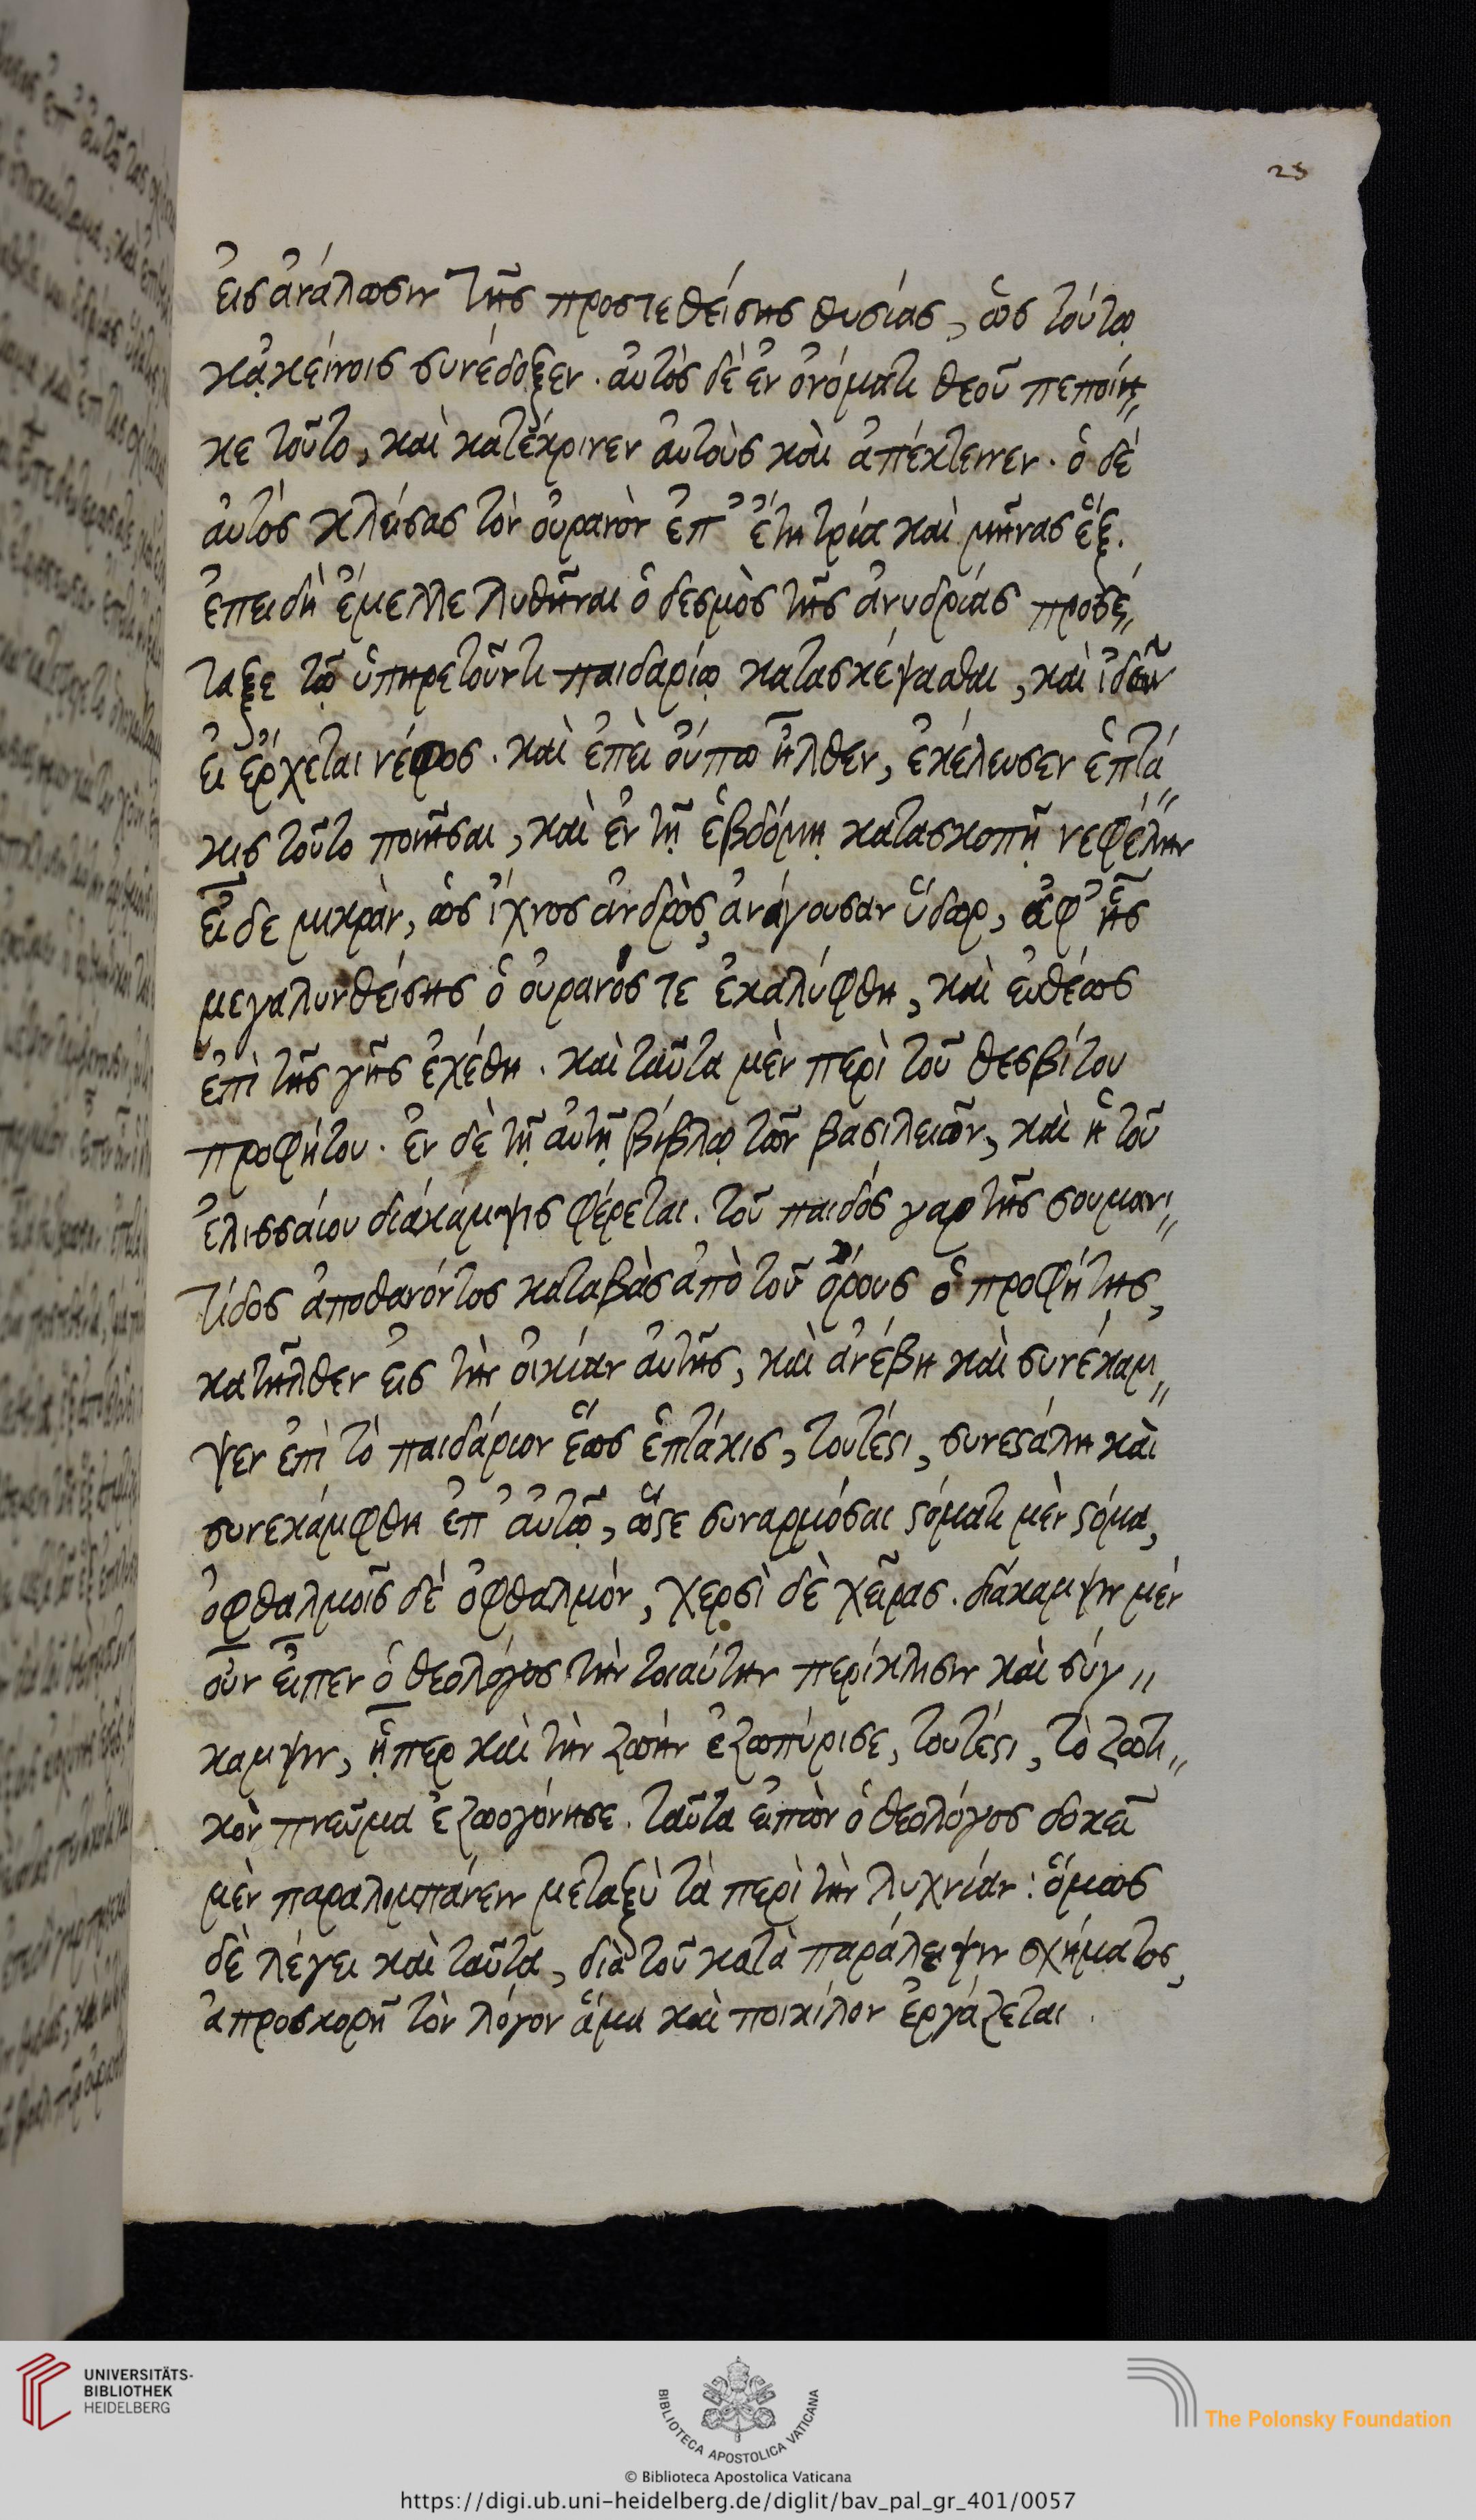 25
εἰς ἀνάλωσιν τῆς προστεθείσης θυσίας, ὡς τούτω
κᾀκείνοις συνέδοξεν. αὐτὸς δὲ ἐν ὀνόματι θεοῦ πεποίη〃
κε τοῦτο, καὶ κατέκρινεν αὐτοὺς καὶ ἀπέκτεινεν. ὁ δὲ
αὐτὸς κλείσας τὸν οὐρανὸν ἐπ' ἔτη τρία καὶ μῆνας ἕξ.
ἐπειδὴ ἔμελλε λυθῆναι ὁ δεσμὸς τῆς ἀνυδρίας προσέ〃
ταξε τῷ ὑπηρετοῦντι παιδαρίῳ κατασκέψασθαι, καὶ ἰδεῖν
εἰ ἔρχεται νέφος. καὶ ἐπεὶ οὔπω ἦλθεν, ἐκέλευσεν ἑπτά〃
κις τοῦτο ποιῆσαι, καὶ ἐν τῇ ἑβδόμῃ κατασκοπῇ νεφέλην
εἶδε μικρὰν, ὡς ἴχνος ἀνδρὸς, ἀνάγουσαν ὕδωρ, ἀφ' ἧς
μεγαλυνθείσης ὁ οὐρανός τε ἐκαλύφθη, καὶ εὐθέως
ἐπὶ τῆς γῆς ἐχέθη. καὶ ταῦτα μὲν περὶ τοῦ θεσβίτου
προφήτου. ἐν δὲ τῇ αὐτῇ βίβλῳ τῶν βασιλειῶν, καὶ ἡ τοῦ
ἐλισσαίου διάκαμψις φέρεται. τοῦ παιδός γαρ τῆς σουμανί〃
τίδος ἀποθανόντος καταβὰς ἀπὸ τοῦ ὄρους ὁ προφήτης,
κατῆλθεν εἰς τὴν οἰκίαν αὐτῆς, καὶ ἀνέβη καὶ συνέκαμ〃
ψεν ἐπὶ τὸ παιδάριον ἕως ἑπτάκις, τουτέστι, συνεστάλη καὶ
συνεκάμφθη ἐπ' αὐτῷ, ὥστε συναρμόσαι στόματι μὲν στόμα,
ὀφθαλμοῖς δὲ ὀφθαλμόν, χερσὶ δὲ χεῖρας. διάκαμψιν μὲν
οὖν εἶπεν ὁ θεολόγος τὴν τοιαύτην περίκλησιν καὶ σύγ〃
καμψιν, ᾗπερ καὶ τὴν ζωήν ἐζωπύρισε, τουτέστι, τὸ ζωτι〃
κὸν πνεῦμα ἐζωογόνησε. ταῦτα εἰπὼν ὁ θεολόγος δοκεῖ
μὲν παραλιμπάνειν μεταξὺ τὰ περὶ τὴν λυχνίαν: ὅμως
δὲ λέγει καὶ ταῦτα, διὰ τοῦ κατὰ παράλειψιν σχήματος,
ἀπροσκορῆ τὸν λόγον ἅμα καὶ ποικίλον ἐργάζεται.
UNIVERSITÄTS-
BIBLIOTHEK
HEIDELBERG
BIBLIOTECA APOSTOLICA VATICANA
The Polonsky Foundation
© Biblioteca Apostolica Vaticana
https://digi.ub.uni-heidelberg.de/diglit/bav_pal_gr_401/0057